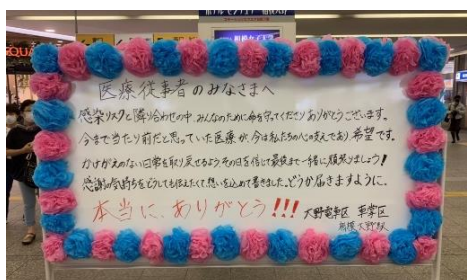 医療従事者のみなさまへ
感染リスクと隣り合わせの中、みんなのために命を守ってくださりありがとうございます。
今まで当たり前だと思っていた医療が、今は私たちの心の支えであり希望です。
かけがえのない日常を取り戻せるようその日を信じて最後まで一緒に頑張りましょう!
感謝の気持ちをどうしても伝えたくて想いを込めて書きました。どうか届きますように。
本当に、ありがとう!!!
大野電車区 車掌区
相模大野駅